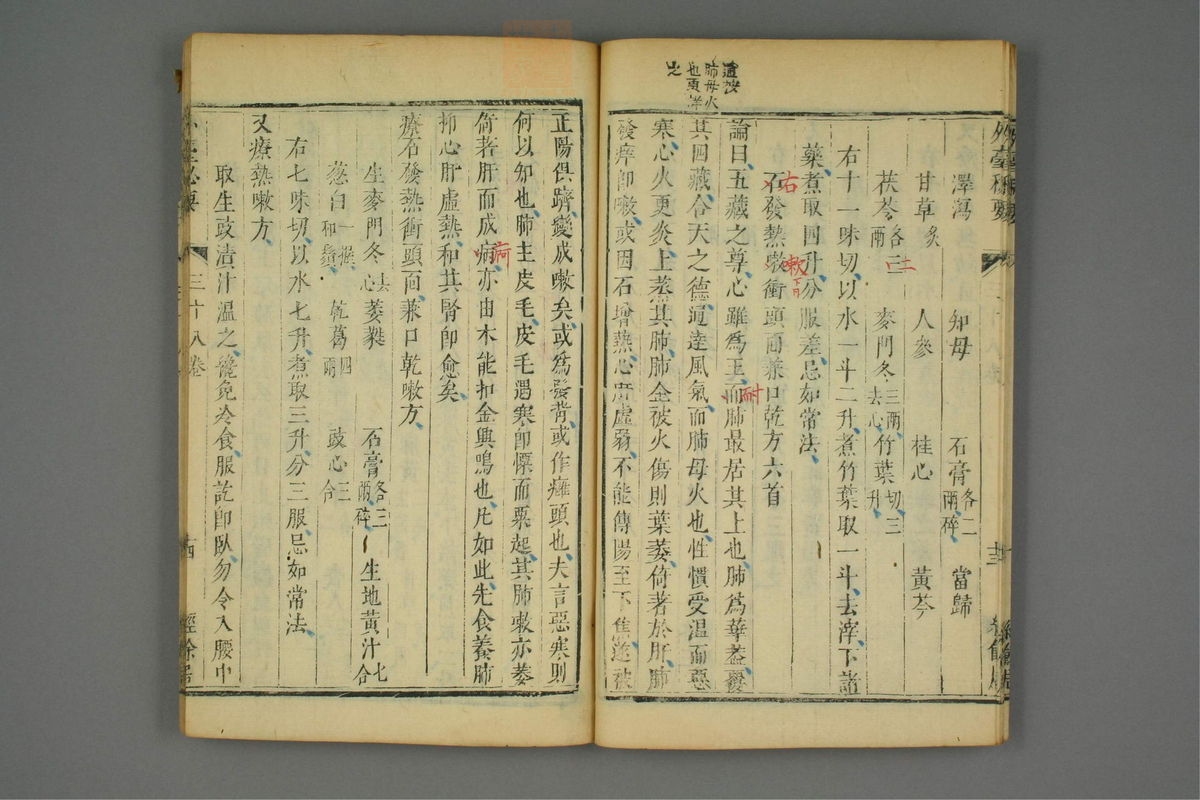 適按
肺母火
也更詳
之
外臺秘要
澤瀉 知母 石膏各二兩碎 當歸
甘草炙 人參 桂心 黃芩
茯苓各三兩 麥門冬三兩去心 竹葉切三升
右十一味切以水一斗二升煮竹葉取一斗去滓下諸
藥煮取四升分服差忌如常法
石發熱嗽衝頭面兼口乾方六首
右
嗽
論曰五藏之尊心雖為王而肺最居其上也肺為華蓋覆
耐
其四藏合天之德通達風氣而肺母火也性惯受温而惡
寒心火更炎上蒸其肺肺金被火傷則葉萎倚著於肝肺
發痒即嗽或因石增熱心腑虛弱不能傳陽至下焦遂被
正陽俱躋變成嗽矣或為發背或作癰頭也夫言惡寒則
何以知也肺主皮毛皮毛遇寒即慄而粟起其肺嗽亦萎
倚著肝而成病亦由木能扣金興鳴也凡如此先食養肺
病
抑心肝虛熱和其腎即愈矣
療石發熱衝頭面兼口乾嗽方
生麥門冬去心 萎蕤 石膏各三兩碎 生地黃汁七合
葱白一握和鬚 乾葛四兩 豉心三合
右七味切以水七升煮取三升分三服忌如常法
又療熱嗽方
取生豉漬汁温之㡬免冷食服訖即臥勿令入腰中
三十八卷 十四 經餘居